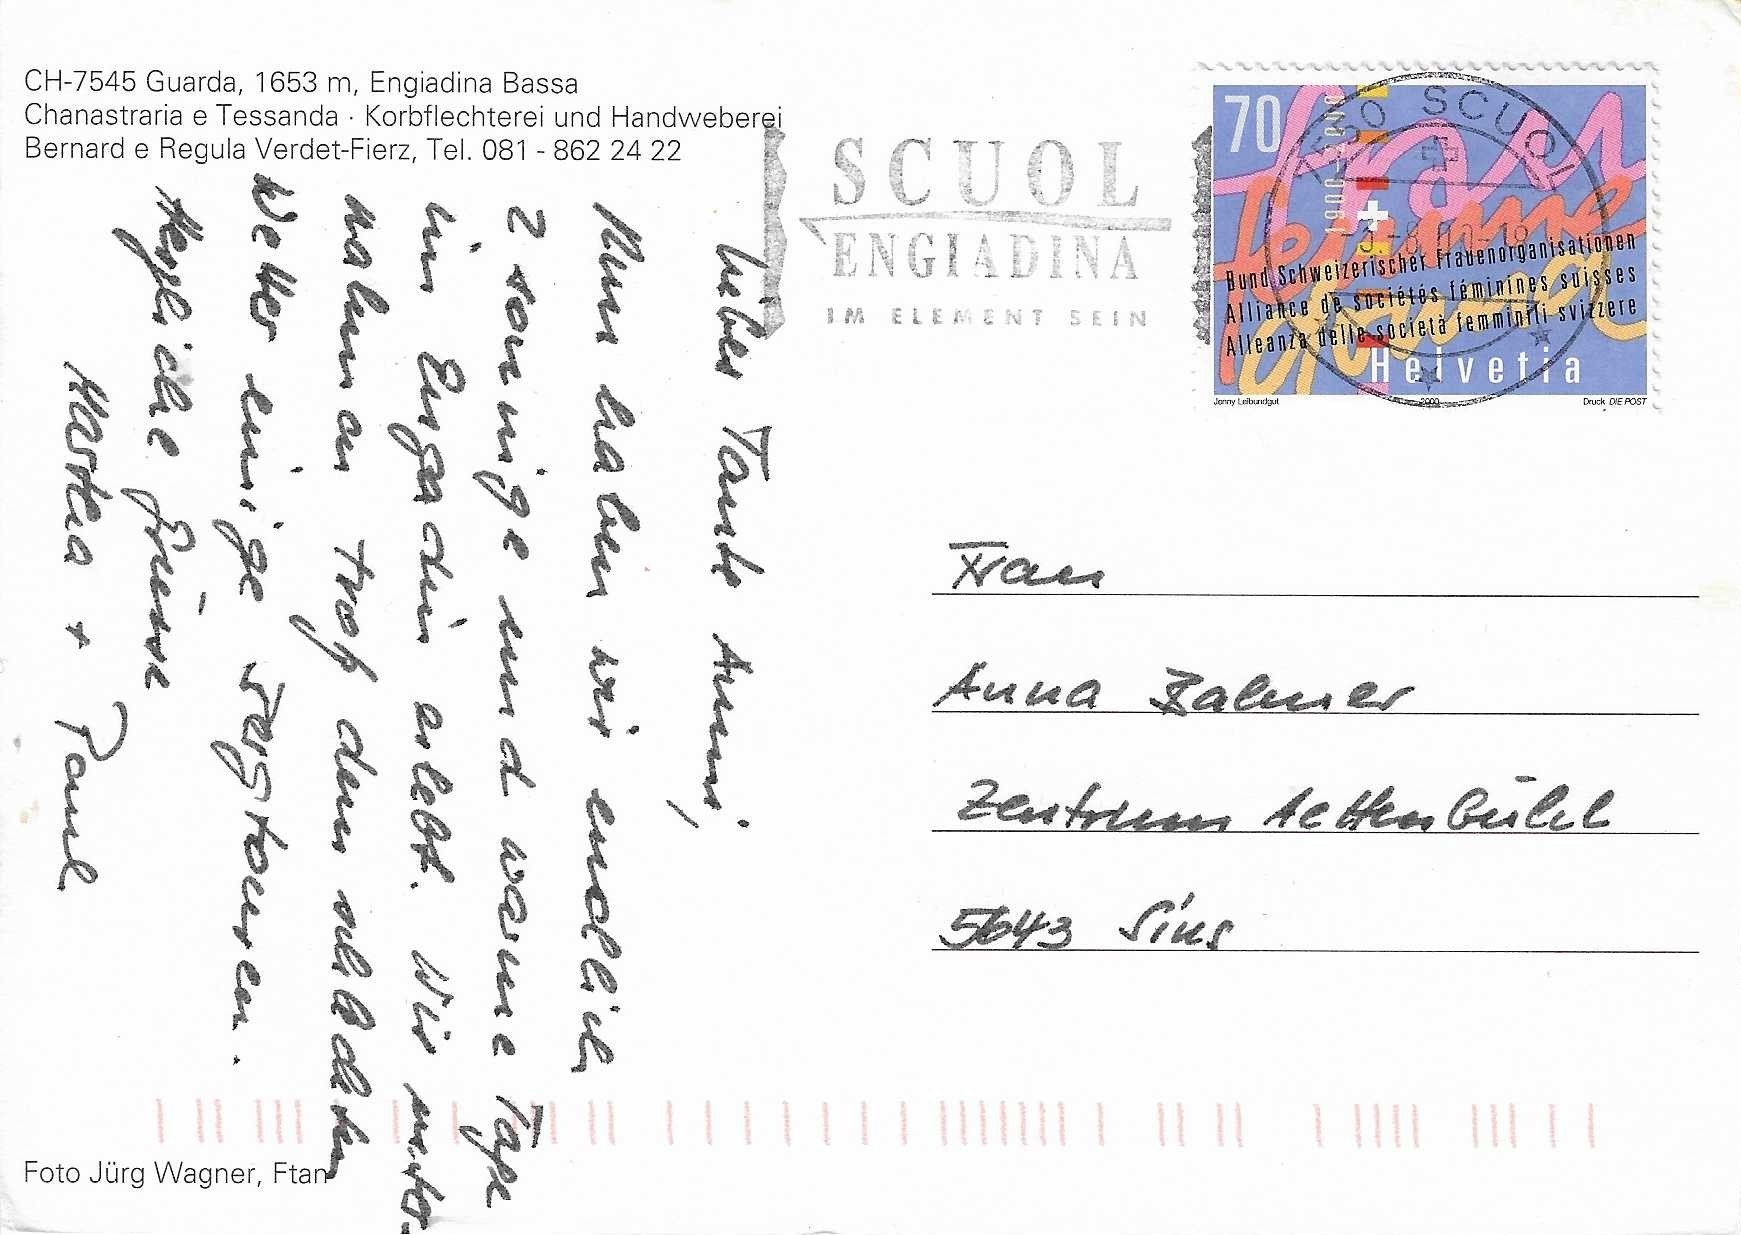 CH-7545 Guarda, 1653 m, Engiadina Bassa
Chanastraria e Tessanda · Korbflechterei und Handweberei
Bernard e Regula Verdet-Fierz, Tel. 081 - 862 24 22
SCUOL
ENGIADINA
IM ELEMENT SEIN
70
1900-2000
Frau
Femme
Donna
Bund Schweizerischer Frauenorganisationen
Alliance de sociétés féminines suisses
Alleanza delle società femminili svizzere
Helvetia
Jenny Leibundgut
2000
Druck DIE POST
7550 SCUOL
Liebes Tante Anni,
Nun haben wir endlich
2 sonnige und warme Tage
im Engadin erlebt. Wir unter-
nahmen trotz dem schlechten
Wetter einige Bergtouren.
Herzliche Grüsse
Martha + Paul
Frau
Anna Balmer
Zentrum Aettenbühl
5643 Sins
Foto Jürg Wagner, Ftan